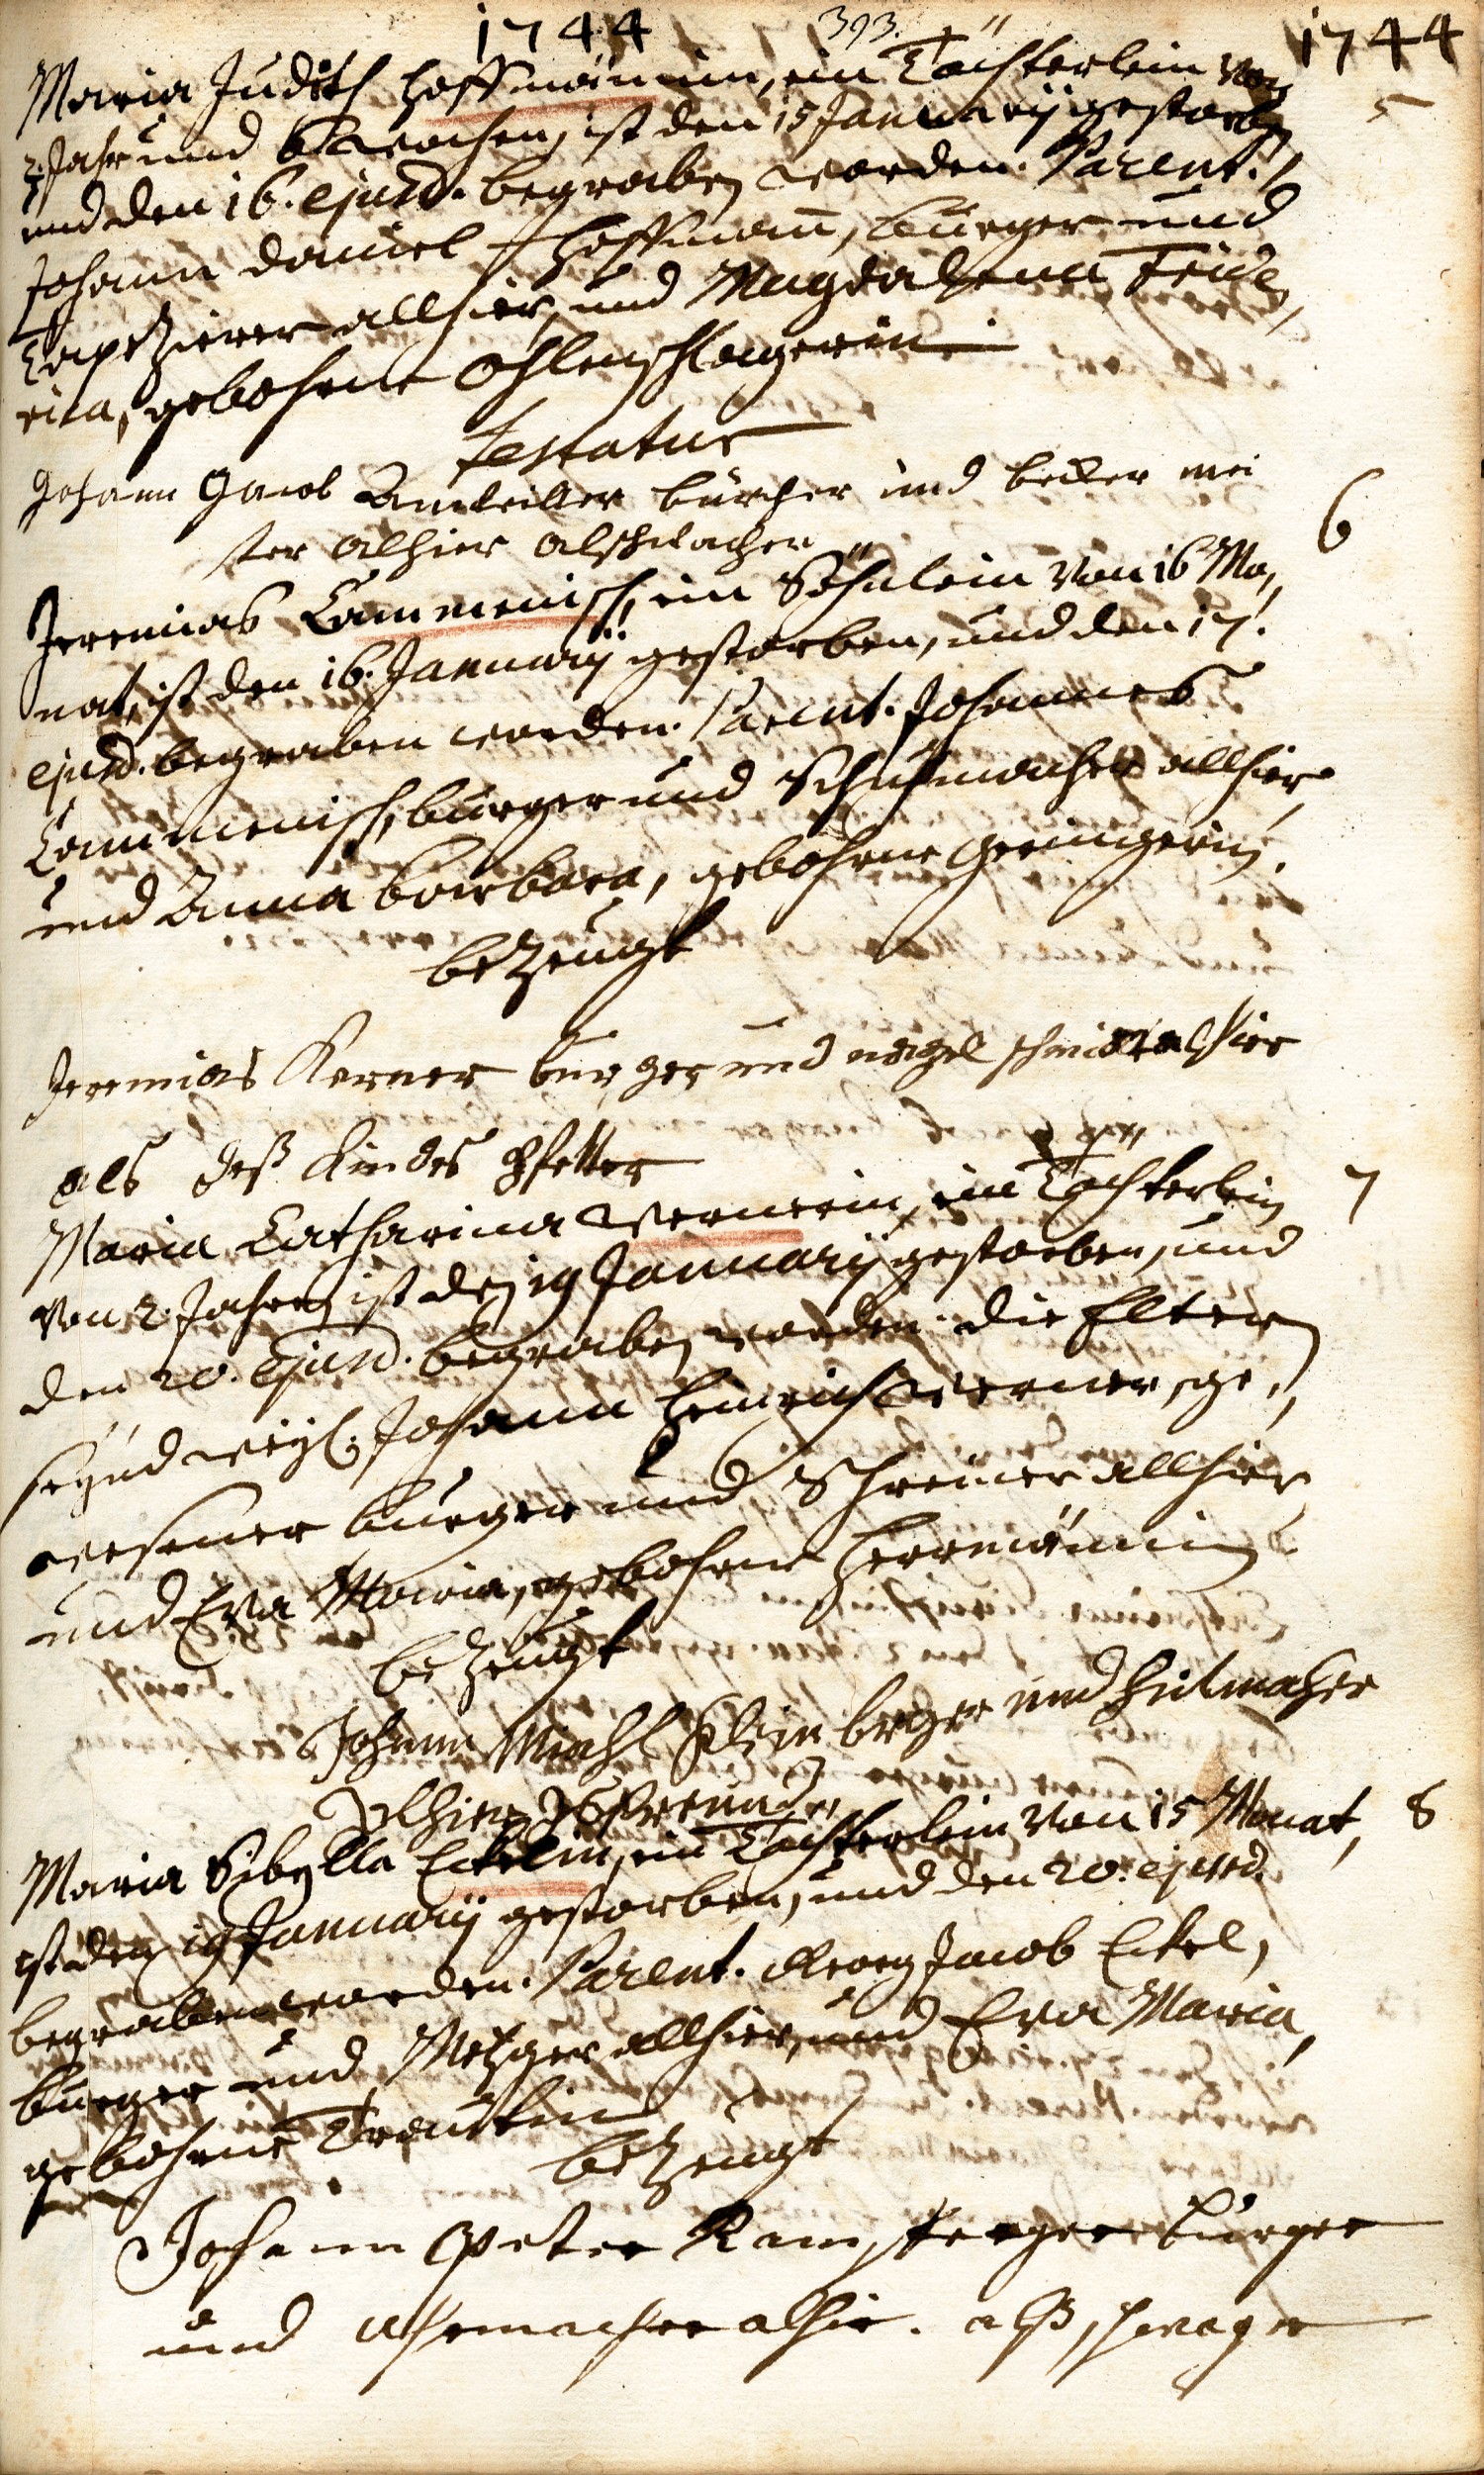 1744 393. 1744
Maria Judith Hoffmännin, ein Töchterlein von 5
2 Jahr und 6 Wochen, ist den 15 Januarij gestorben
und den 16. ejusd. begraben worden. Parent.
Johann Daniel Hoffmañ, burger und
Tapezierer allhier, und Magdalena Fride,
rica, gebohrne Ohlenschlagerin
Testatur
Johann Jacob burcher und becker mei
ster alhier als
Jeremias Cammenisch, ein Söhnlein von 16 Mo, 6
nat, ist den 16. Januarij gestorben, und den 17.
ejusd. begraben worden. Parent. Johannes
Cammenisch, burger und Schuhmacher allhier,
und Anna Barbara, gebohrne Geringerin.
bezeugt
Jeremias Kerner burger und nagel schmidt alhier
als deß Kindes Pfetter
Maria Catharina Wernerin, ein Töchterlein 7
von 2. Jahren ist den 19 Januarij gestorben, und
den 20. Ejusd. begraben worden. die Eltern
seynd weyl. Johann Heinrich Werner, ge,
wesener burger und Schreiner allhier
und Eva Maria, gebohrne Herrmännin
bezeugt
Johann Michl und Hutmacher
Alhier
Maria Sibylla Eckelin, ein Töchterlein von 15 Monat, 8
ist den 19 Januarij gestorben, und den 20. ejusd.
begraben worden. Parent. Georg Jacob Eckel,
burger und Metzger allhier, und Eva Maria,
gebohrne Trautin
bezeugt
Johann Peter Ramsperger burger
und alhie. alß schwager